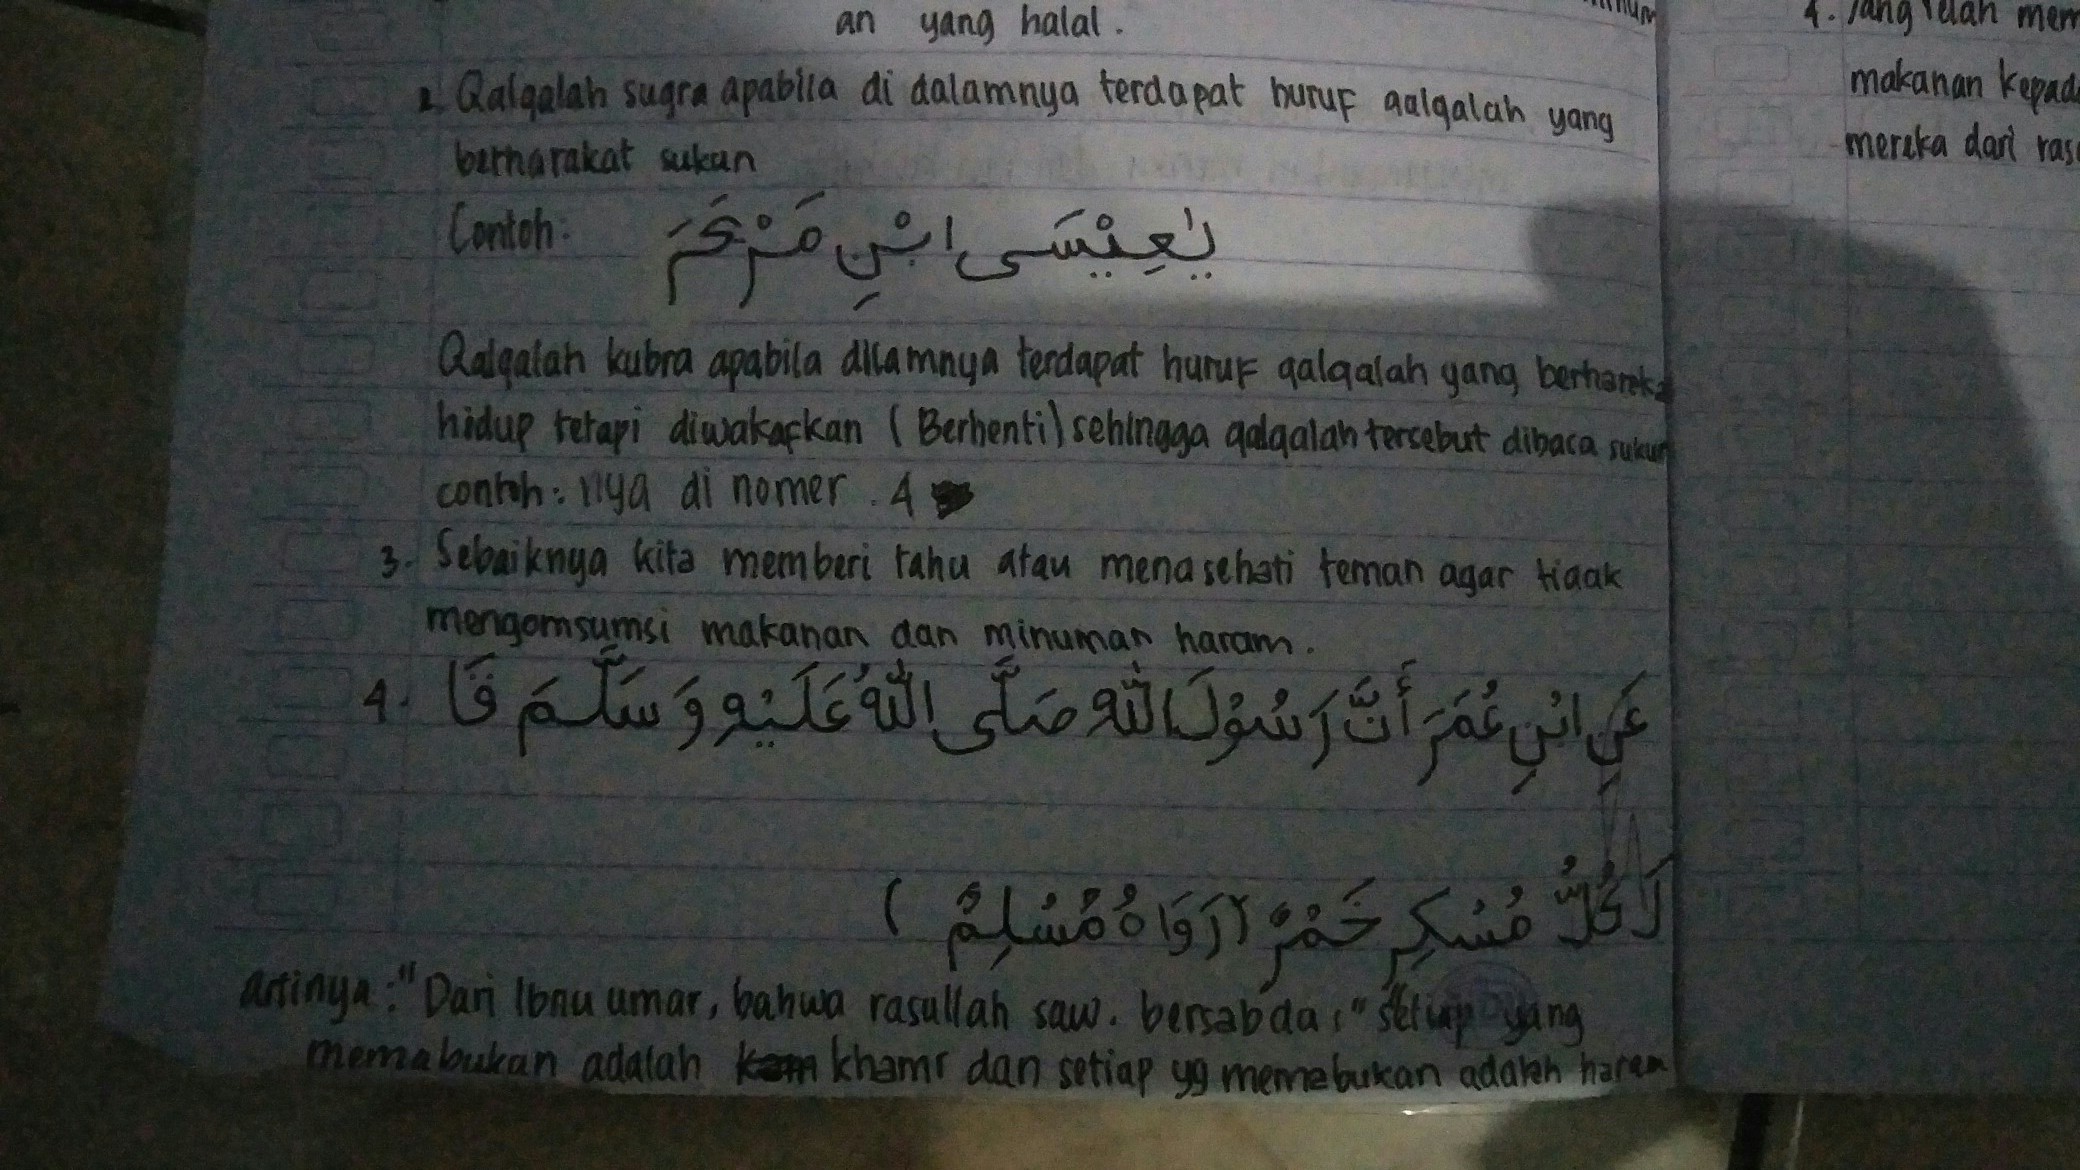 an yang halal.
2. Qalqalah sugra apabila di dalamnya terdapat huruf qalqalah yang
berharakat sukun
Contoh: يٰعِيْسَى ابْنِ مَرْيَمَ
Qalqalah kubra apabila dilamnya terdapat huruf qalqalah yang berhareka
hidup tetapi diwakafkan (Berhenti) sehingga qalqalah tersebut dibaca sukun
contoh: nya di nomer. 4
3. Sebaiknya kita memberi tahu atau menasehati teman agar tidak
mengomsumsi makanan dan minuman haram.
4. عَنِ ابْنِ عُمَرَ أَنَّ رَسُوْلَ اللّٰهِ صَلَّى اللّٰهُ عَلَيْهِ وَسَلَّمَ قَا
لَ كُلُّ مُسْكِرٍ خَمْرٌ (رَوَاهُ مُسْلِمٌ)
artinya: "Dari Ibnu umar, bahwa rasullah saw. bersabda: "setiap yang
memabukan adalah khamr dan setiap yg memabukan adalah haram
4. yang telah mem
makanan kepada
mereka dari ras